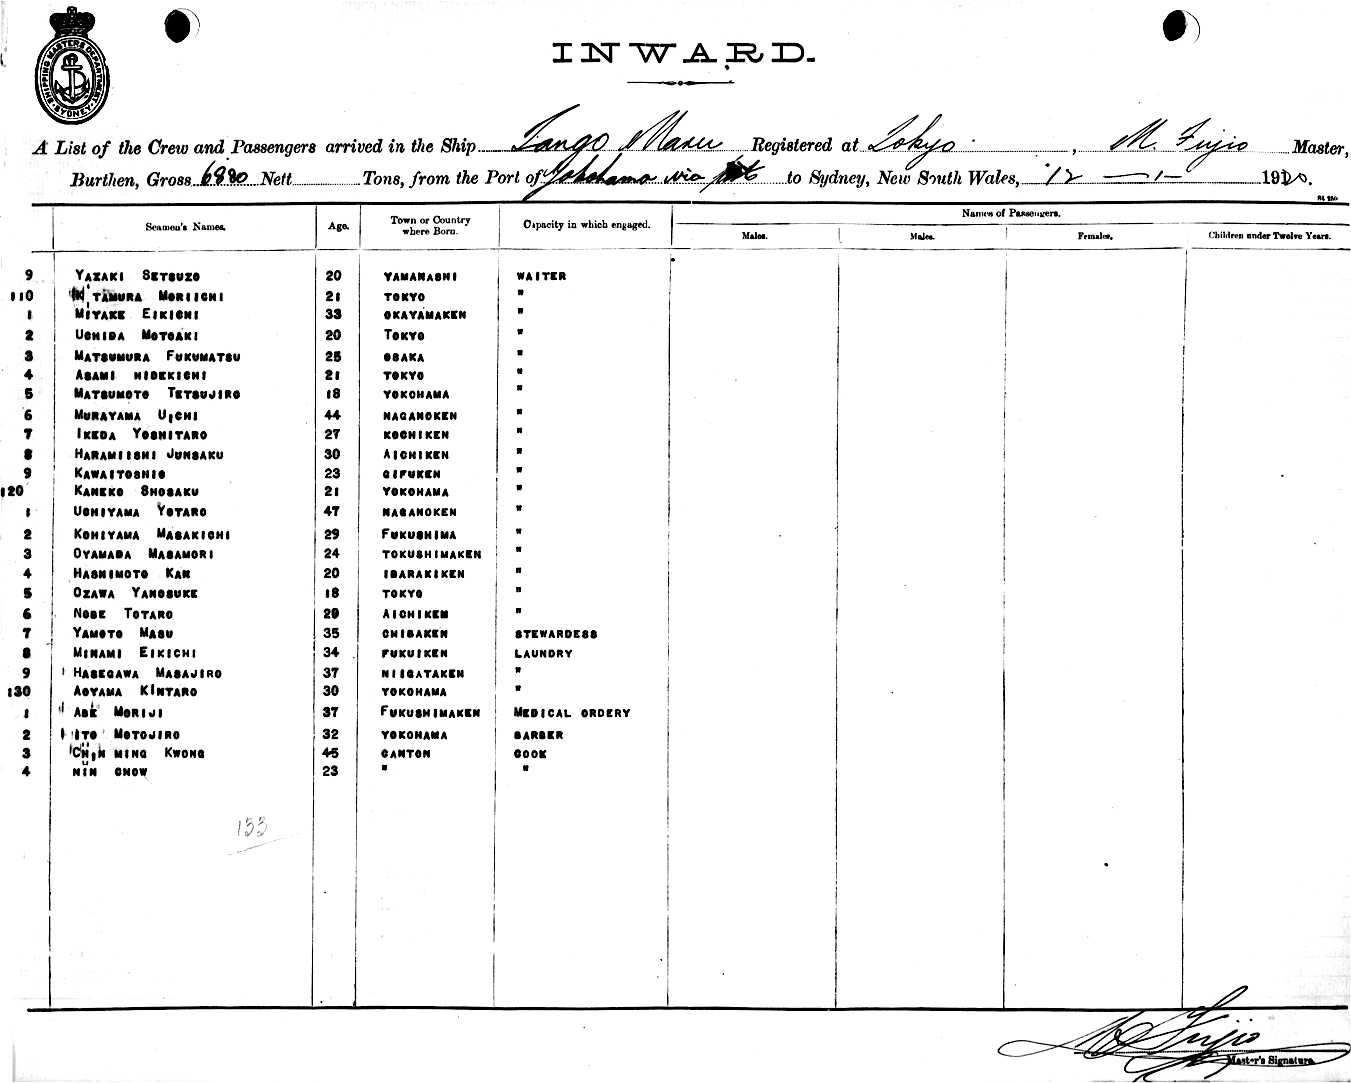 SHIPPING MASTERS DEPARTMENT SYDNEY
INWARD.
A List of the Crew and Passengers arrived in the Ship Tango Maru Registered at Tokyo, M. Fujio Master,
Burthen, Gross 6880 Nett Tons, from the Port of Yokohama via to Sydney, New South Wales, 12 - 1 - 1920.
Seamen's Names. Age. Town or Country where Born. Capacity in which engaged. Names of Passengers.
Males. Males. Females. Children under Twelve Years.
9 YAZAKI SETSUZO 20 YAMANASHI WAITER
110 TAMURA MORIICHI 21 TOKYO "
1 MIYAKE EIKICHI 33 OKAYAMAKEN "
2 UCHIDA MOTOAKI 20 TOKYO "
3 MATSUMURA FUKUMATSU 25 OSAKA "
4 ASAMI HIDEKICHI 21 TOKYO "
5 MATSUMOTO TETSUJIRO 18 YOKOHAMA "
6 MURAYAMA UICHI 44 NAGANOKEN "
7 IKEDA YOSHITARO 27 KOCHIKEN "
8 HARAMIISHI JUNSAKU 30 AICHIKEN "
9 KAWAITOSHIO 23 GIFUKEN "
120 KANEKO SHOSAKU 21 YOKOHAMA "
1 UCHIYAMA YOTARO 47 NAGANOKEN "
2 KOHIYAMA MASAKICHI 29 FUKUSHIMA "
3 OYAMADA MASAMORI 24 TOKUSHIMAKEN "
4 HASHIMOTO KAN 20 IBARAKIKEN "
5 OZAWA YANOSUKE 18 TOKYO "
6 NOBE TOTARO 29 AICHIKEN "
7 YAMOTO MASU 35 CHIBAKEN STEWARDESS
8 MINAMI EIKICHI 34 FUKUIKEN LAUNDRY
9 HASEGAWA MASAJIRO 37 NIIGATAKEN "
130 AOYAMA KINTARO 30 YOKOHAMA "
1 ABE MORIJI 37 FUKUSHIMAKEN MEDICAL ORDERY
2 ITO MOTOJIRO 32 YOKOHAMA BARBER
3 MING KWONG 45 CANTON COOK
4 CHOW 23 " "
133
M. Fujio
Master's Signature.